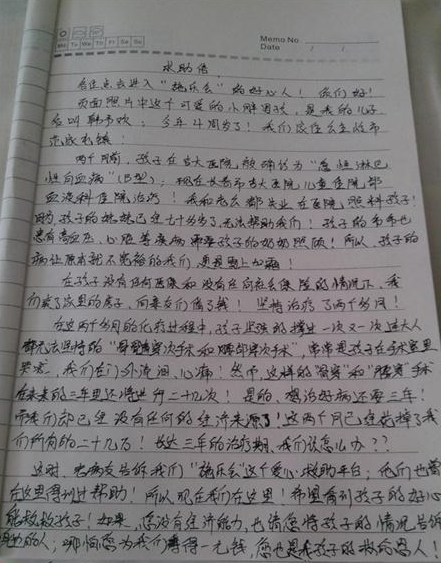 Memo No.
Date / /
Mo Tu We Th Fr Sa Su
求助信
各位点击进入“施乐会”的好心人！你们好！
页面照片中这个可爱的小胖男孩，是我的儿子
名叫韩韦欢；今年4周岁了！我们家住
两个月前，孩子在大医院，被确诊为“急性淋巴
性白血病”（B型）；现在长春市大医院儿童医院部
血液科住院治疗！我和老公都失业在医院照料孩子！
因为孩子的姥姥已经七十多岁了，无法帮助我们！孩子的爷爷也
患有高血压、心脏等疾病需要孩子的奶奶照顾！所以，孩子的
病让原本就不宽裕的我们，更是雪上加霜！
在孩子没有任何医保和没有任何社会保险的情况下，我
们卖了家里的房子，向亲友们借了钱！坚持治疗了两个多月！
在这两个多月的化疗过程中，孩子坚强的撑过一次又一次连大人
都无法坚持的“骨髓穿刺手术和腰部穿刺手术”，常常是孩子在手术室里
哭，我们在门外流泪、心痛！然而，这样的“骨穿”和“腰穿”手术
在未来的三年里还将进行二十几次！是的，想治好病还要三年！
而我们却已经没有任何的经济来源了！这两个月已经花掉了我
们所有的二十几万！长达三年的治疗期，我们该怎么办？？
这时，老病友告诉我们“施乐会”这个爱心救助平台；他们也曾
在这里得到过帮助！所以现在我们在这里！希望看到孩子的好心
能救救孩子！如果，您没有经济能力，也请您将孩子的情况告诉
的人；哪怕您为我们筹得一元钱，您也是我孩子的救命恩人！